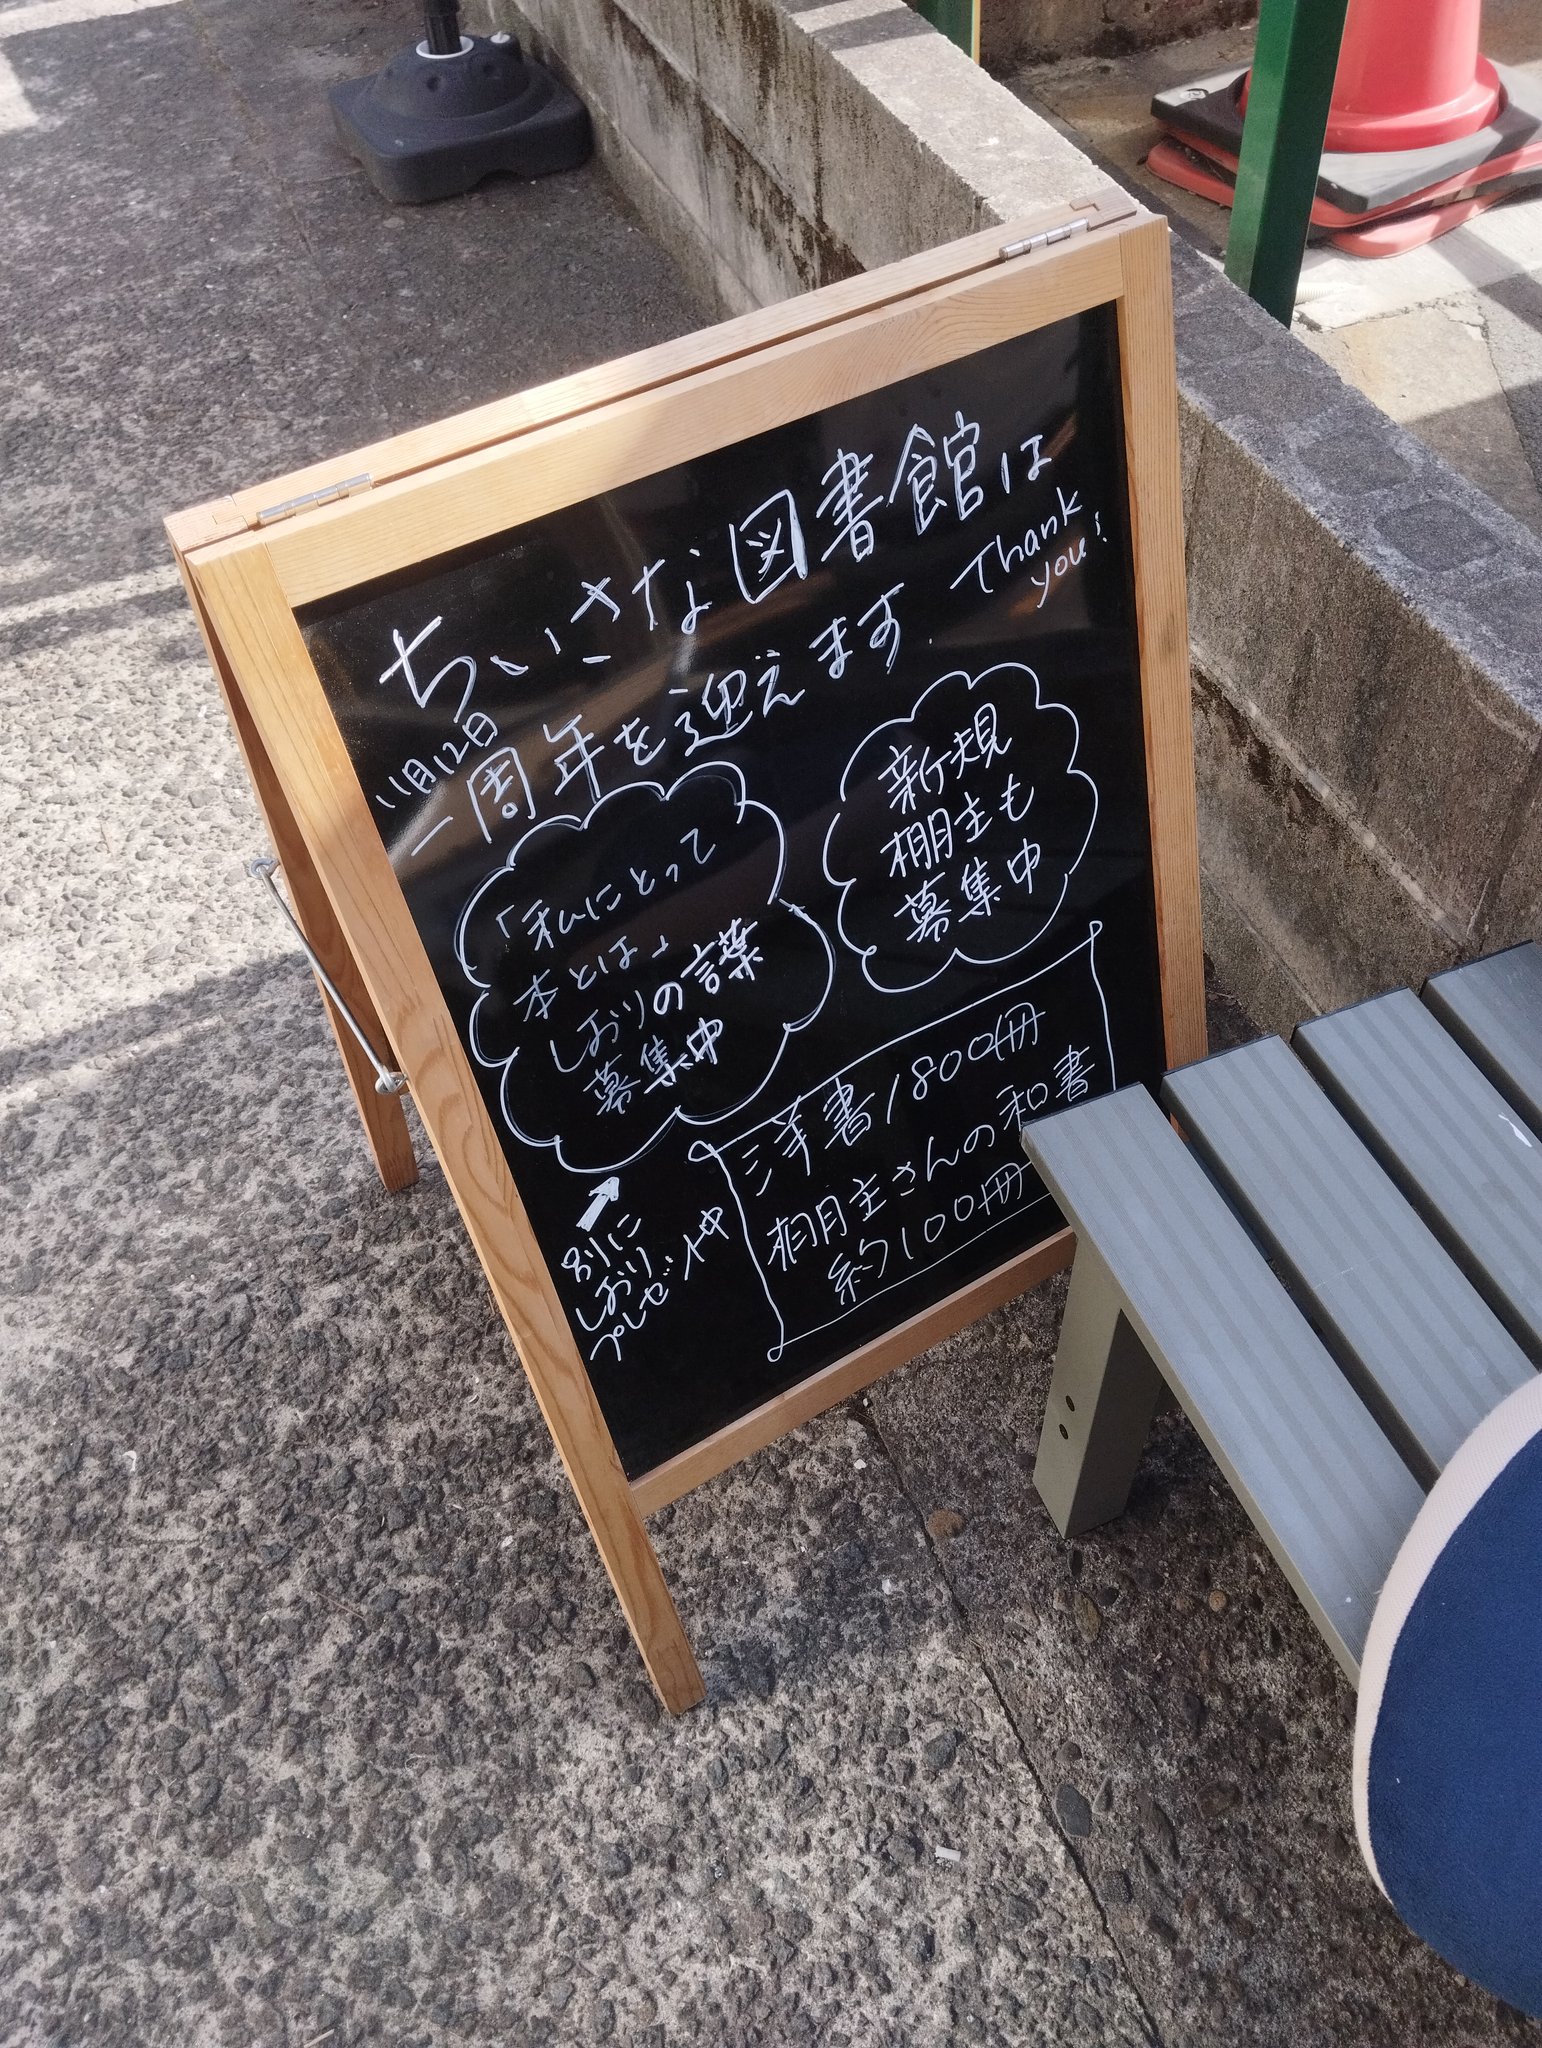 ちいさな図書館は
11月12日
一周年を迎えます.
Thank
you!
「私にとって
本とは」
しおりの言葉
募集中
新規
棚主も
募集中
別に
しおり
プレゼント中
洋書1800冊
棚主さんの和書
約100冊